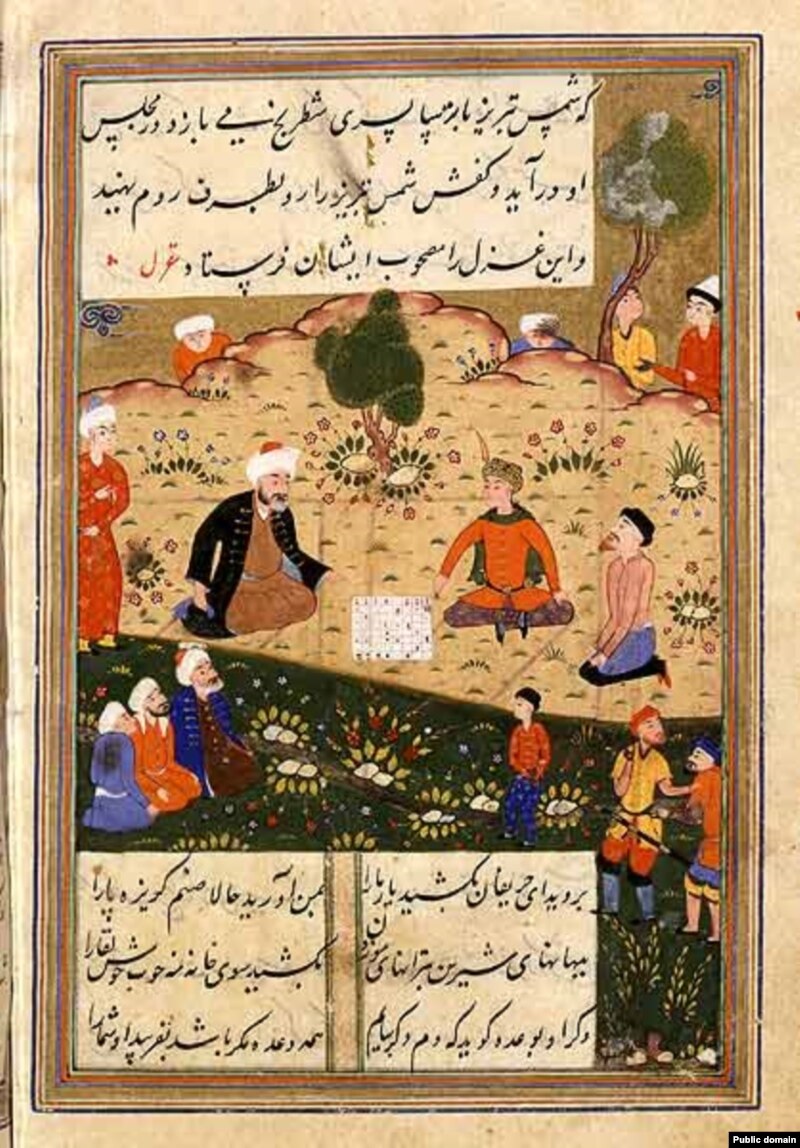 که شمس تبریز با ترسا پسری شطرنج می بازد در مجلس
او در آید و کفش شمس تبریز را رو بطرف روم نهید
و این غزل را مصحوب ایشان فرستاد غزل
بروید ای حریفان بکشید یار ما را بمن آورید حالا صنم کریزه پا را
ببهانهای شیرین بترانهای موزون بکشید سوی خانه مه خوب خوش لقا را
و کر او بوعده کوید که دم دکر بیایم همه وعده مکر باشد بفریبد او شما را
Public domain